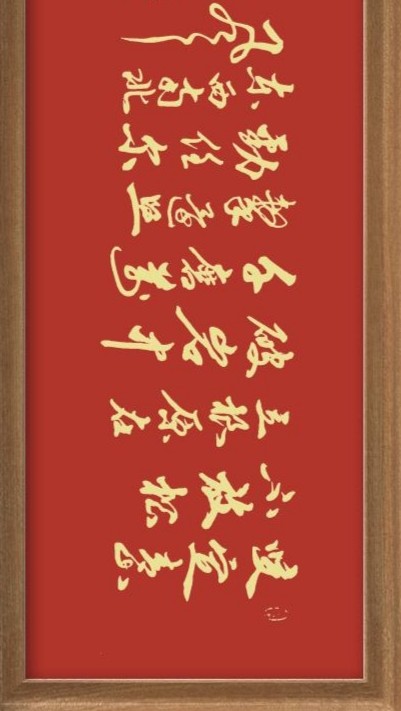 咬定青山
不放松
立根原在
破岩中
千磨萬
擊还坚
劲任尔
东西南北
风